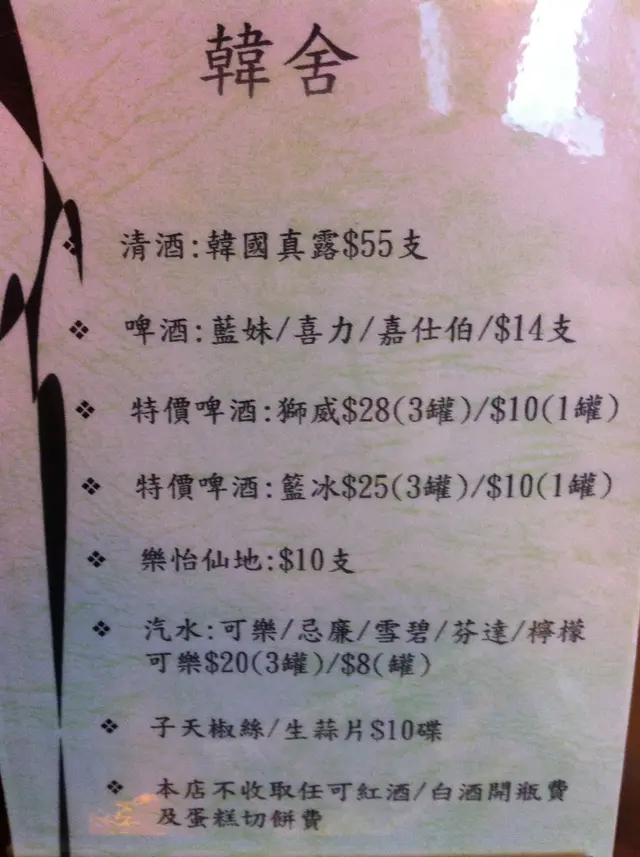 韓舍
清酒:韓國真露$55支
啤酒:藍妹/喜力/嘉仕伯/$14支
特價啤酒:獅威$28(3罐)/$10(1罐)
特價啤酒:籃冰$25(3罐)/$10(1罐)
樂怡仙地:$10支
汽水:可樂/忌廉/雪碧/芬達/檸檬
可樂$20(3罐)/$8(罐)
子天椒絲/生蒜片$10碟
本店不收取任可紅酒/白酒開瓶費
及蛋糕切餅費